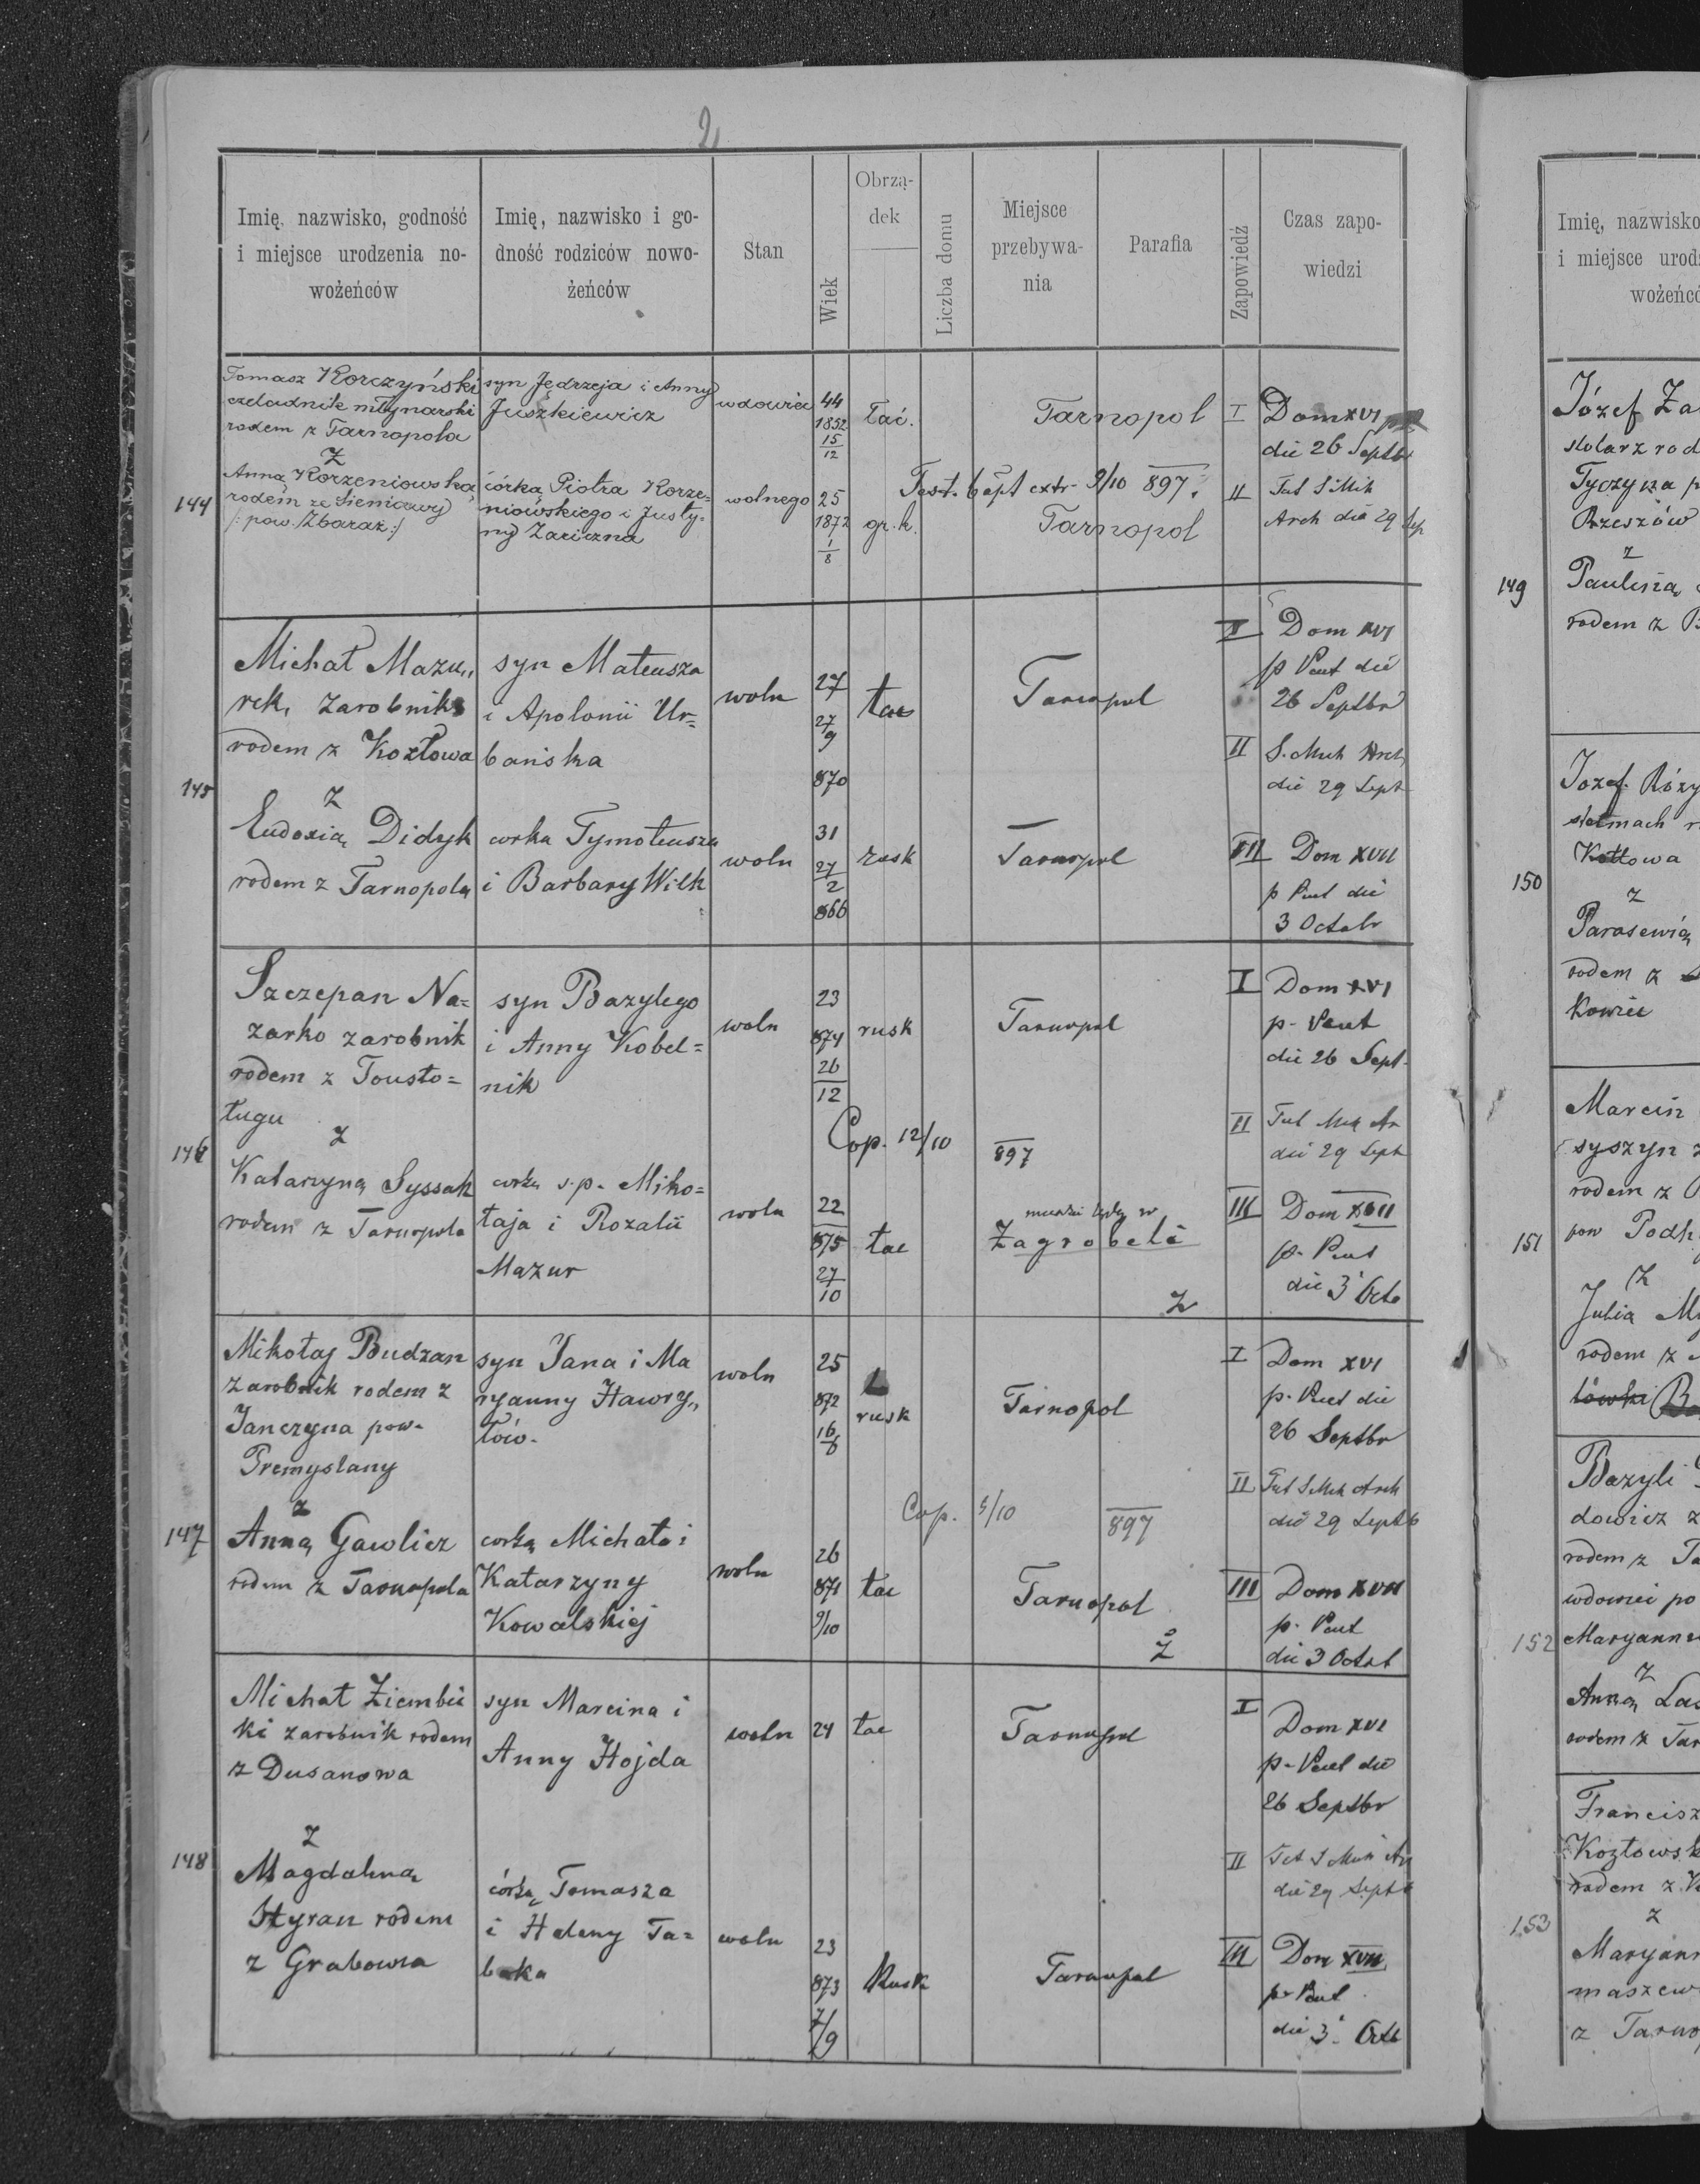 2
Imię, nazwisko, godność
i miejsce urodzenia no-
wożeńców
Imię, nazwisko i go-
dność rodziców nowo-
żeńców
Stan
Wiek
Obrzą-
dek
Liczba domu
Miejsce
przebywa-
nia
Parafia
Zapowiedź
Czas zapo-
wiedzi
144
Tomasz Korczyński
czeladnik młynarski
rodem z Tarnopola
z
Anną Korzeniowską
rodem ze Sieniawy
/: pow. Zbaraż :/
syn Jędrzeja i Anny
Juszkiewicz
córką Piotra Korze=
niowskiego i Justy=
ny Zariczna
wdowiec
wolnego
44
1852
15
12
25
1872
1
8
łać.
gr. k.
Tarnopol
Test. bapt extr. 9/10 897.
Tarnopol
I
Dom XVI
die 26 Septbr
II
Fest S Mik
Arch die 29 Sep
145
Michał Mazu„
rek, zarobnik
rodem z Kozłowa
z
Eudoxią Didyk
rodem z Tarnopola
syn Mateusza
i Apolonii Ur=
bańska
corka Tymoteusza
i Barbary Wilk
woln
woln
27
27
9
870
31
27
2
866
łac
rusk
Tarnopol
Tarnopol
I
Dom XVI
p Pent die
26 Septbr
II
S. Mich Arch
die 29 Sept
III
Dom XVII
p Pent die
3 Octobr
146
Szczepan Na=
zarko zarobnik
rodem z Tousto=
ługu
z
Katarzyną Syssak
rodem z Tarnopola
syn Bazylego
i Anny Kobel=
nik
corką s.p. Miko=
łaja i Rozalii
Mazur
woln
woln
23
874
26
12
22
875
27
10
rusk
łac
Tarnopol
Cop. 12/10 897
w
Zagrobeli
Z
I
Dom XVI
p. Pent
die 26 Sept.
II
die 29 Sept
III
Dom XVII
p. Pent
die 3 Octo
147
Mikołaj Budzan
zarobnik rodem z
Janczyna pow.
Premyslany
z
Anną Gawlicz
rodem z Tarnopola
syn Jana i Ma
ryanny Hawry„
łów.
corką Michała i
Katarzyny
Kowalskiej
woln
woln
25
872
16
6
26
871
9/10
rusk
łac
Tarnopol
Cop. 5/10 897
Tarnopol
Z
I
Dom XVI
p. Pent die
26 Septbr
II
Fest S Mich Arch
die 29 Septb
III
Dom XVII
p. Pent
die 3 Octob
148
Michał Ziembic
ki zarobnik rodem
z Dusanowa
z
Magdaleną
Hyran rodem
z Grabowca
syn Marcina i
Anny Hojda
córką Tomasza
i Heleny Ta=
baka
woln
woln
24
23
873
7/9
łac
Rusk
Tarnopol
Tarnopol
I
Dom XVI
p. Pent die
26 Septbr
II
die 29 Septb
III
Dom XVII
p. Pent
die 3 Octb
Imię, nazwisko
i miejsce urod
wożeńc
149
Józef Za
stolarz rod
Tyczyna p
Rzeszów
z
Pauliną
rodem z B
150
Jozef Rózy
stelmach r
Kozłowa
z
Parasewią
rodem z
kowiec
151
Marcin
syszyn z
rodem z
pow Podh
z
Julia My
rodem z
lówki
152
Bazyli
dowicz z
rodem z Ta
wdowiec po
Maryannie
z
Anną Las
rodem z Tar
153
Francisz
Kozłowsk
rodem z K
z
Maryann
maszew
z Tarno